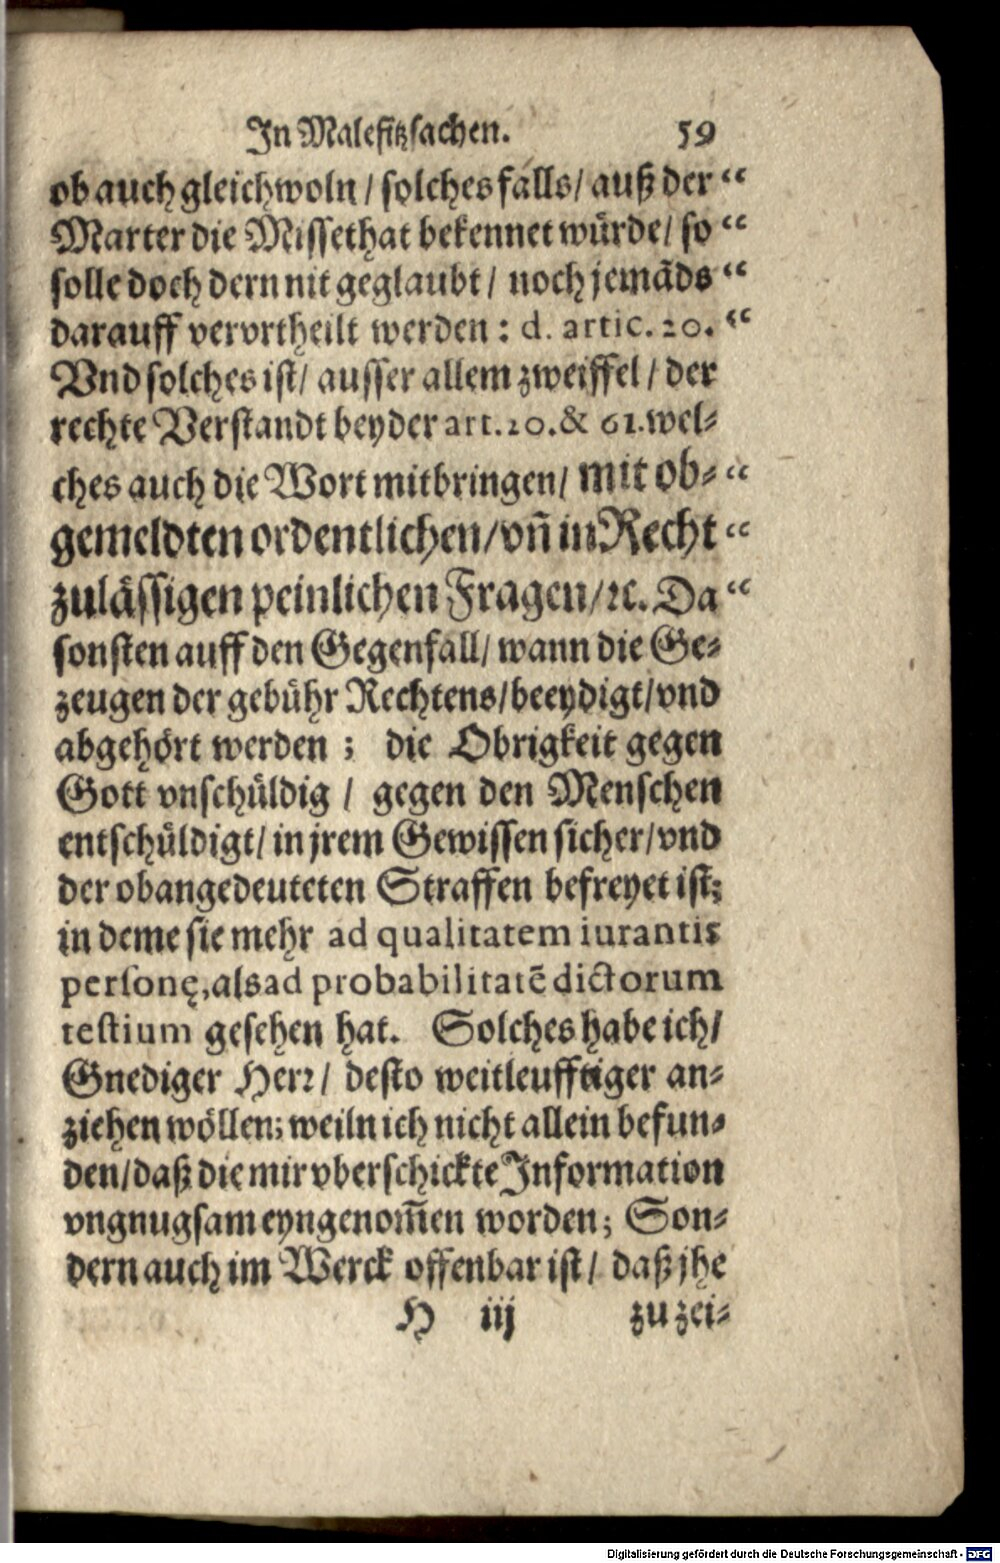 In Malefitzsachen. 59
ob auch gleichwoln / solches falls / auß der “
Marter die Missethat bekennet würde / so “
solle doch dern nit geglaubt / noch jemãds “
darauff verurtheilt werden : d. artic. 20. “
Vnd solches ist / ausser allem zweiffel / der
rechte Verstandt beyder art. 20. & 61. wel⸗
ches auch die Wort mitbringen / mit ob⸗ “
gemeldten ordentlichen / vñ in Recht “
zulässigen peinlichen Fragen / ꝛc. Da “
sonsten auff den Gegenfall / wann die Ge⸗
zeugen der gebühr Rechtens / beeydigt / vnd
abgehört werden ; die Obrigkeit gegen
Gott vnschüldig / gegen den Menschen
entschüldigt / in jrem Gewissen sicher / vnd
der obangedeuteten Straffen befreyet ist;
in deme sie mehr ad qualitatem iurantis
personę, als ad probabilitatẽ dictorum
testium gesehen hat. Solches habe ich /
Gnediger Herr / desto weitleufftiger an⸗
ziehen wöllen; weiln ich nicht allein befun⸗
den / daß die mir vberschickte Information
vngnugsam eyngenom̃en worden; Son⸗
dern auch im Werck offenbar ist / daß jhe
H iij zu zei⸗
Digitalisierung gefördert durch die Deutsche Forschungsgemeinschaft - DFG